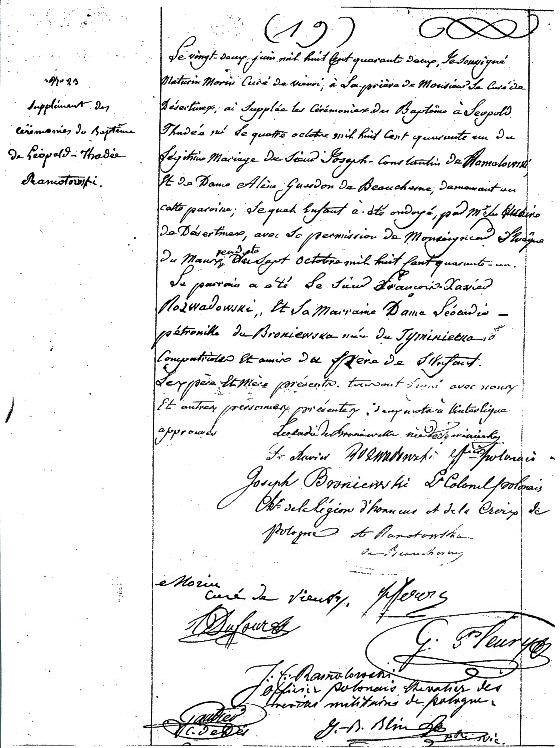 (19)
N° 23
Supplément des
cérémonies du Baptême
de Léopold-Thadée
Ramotowski.
Le vingt deux juin mil huit Cent quarante deux, Je soussigné
Maturin Morin Curé de vieuvi, à La prière de Monsieur Le Curé de
Désertines, ai Supplée les Cérémonies du Baptême à Léopold
Thadée né Le quatre octobre mil huit Cent quarante un du
Légitime Mariage du Sieur Joseph-Constantin de Ramotowski
Et de Dame Alère Guesdon de Beauchesne, demeurant en
cette paroisse; Lequel Enfant a été ondoyé, par Mr Le Vicaire
de Désertines, avec La permission de Monseigneur L'Evêque
du Mans, en date du Sept Octobre mil huit Cent quarante-un.
Le parain a été Le Sieur François-Xavier
Rozwadowski, Et La Marraine Dame Léocadie
pétronille du Broniewska née du Tyminiecka
Compatriotes Et amis du père de L'Enfant.
Les père Et Mère présents. Signé avec nous
Et autres personnes présentes;
approuvés
Léocadie de Broniewska née de Tyminiecka
Fr Xavier Rozwadowski off. polonais
Joseph Broniewski Lt Colonel polonais
Chr de la Légion d'honneur et de la Croix de
pologne
de Ramotowska
de Beauchesne
Morin
curé de vieuvy,
Dufour
G. Fleury
J. C. Ramotowski
officier polonais chevalier des
mérites militaires de pologne.
Gautier
G. B. Blin